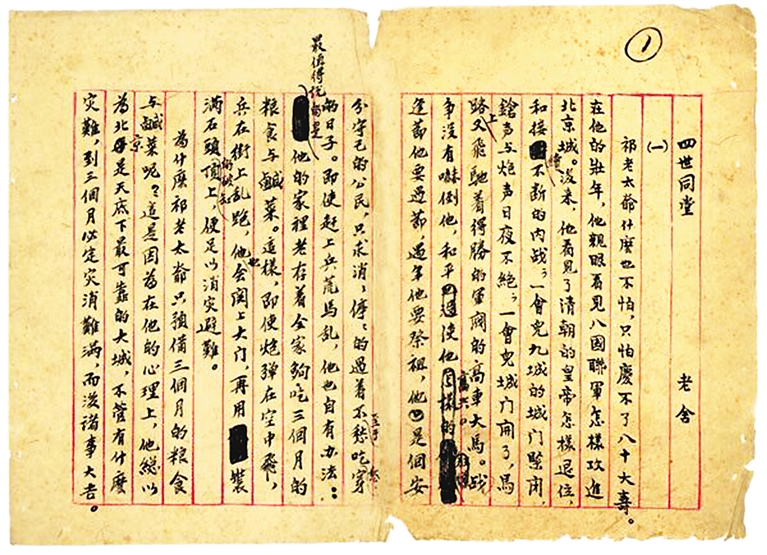 1
四世同堂　老舍
(一)
祁老太爺什麼也不怕,只怕慶不了八十大壽。
在他的壯年,他親眼看見八國聯軍怎樣攻進
北京城。後来,他看見了清朝的皇帝怎樣退位,
和接續不断的内战;一會兒九城的城门緊闭,
鎗声与炮声日夜不絶;一會兒城门開了,馬
路上又飛馳着得勝的軍閥的高車大馬。战
争没有嚇倒他,和平使他高兴。
逢節他要過節,過年他要祭祖,他是個安
分守己的公民,只求消消停停的過着不至于愁吃愁穿
的日子。即使赶上兵荒馬乱,他也自有办法:
最值得说的是他的家裡老存着全家夠吃三個月的
粮食与鹹菜。這樣,即使炮弹在空中飛,
兵在街上乱跑,他也会関上大门,再用装
满石頭的破缸顶上,便足以消灾避難。
為什麼祁老太爺只預備三個月的粮食
与鹹菜呢?這是因為在他的心理上,他總以
為北京是天底下最可靠的大城,不管有什麼
灾難,到三個月必定灾消難满,而後諸事大吉。